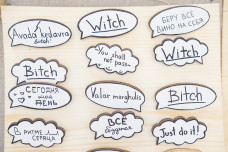 Avada kedavra
bitch!
Witch
БЕРУ ВСЁ
ВИНО НА СЕБЯ
Bitch
You shall
not pass
Witch
СЕГОДНЯ
мой
ДЕНЬ
Valar morghulis
Bitch
В РИТМЕ
СЕРДЦА
ВСЁ
будет
Just do it!